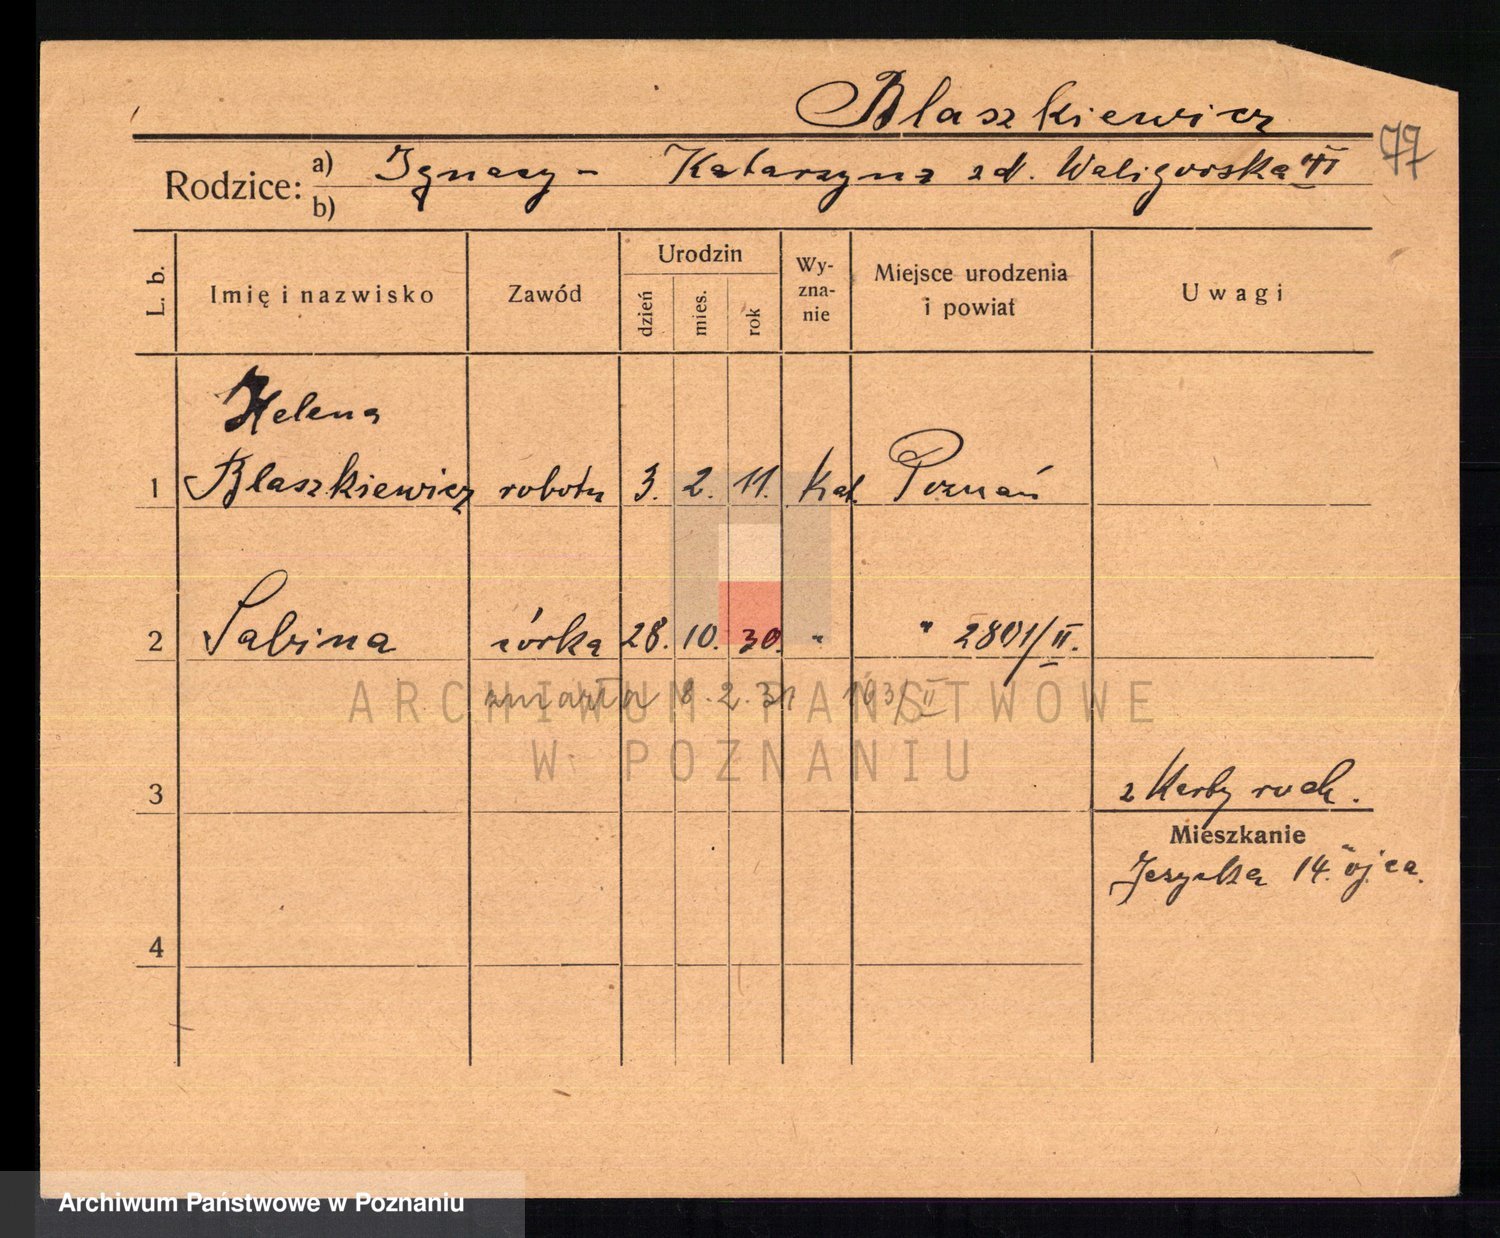 Blaszkiewicz
77
Rodzice: a) Ignacy - Katarzyna zd. Waligorska VI
b)
L. b. Imię i nazwisko Zawód Urodzin dzień mies. rok Wy-zna-nie Miejsce urodzenia i powiat Uwagi
Helena
1 Blaszkiewicz robotn 3. 2. 11. Kat. Poznań
2 Sabina córka 28. 10. 30. " " 2801/II.
zmarła 8. 2. 31 193/II
ARCHIWUM PAŃSTWOWE
W POZNANIU
3
Mieszkanie
14. ojca.
4
Archiwum Państwowe w Poznaniu